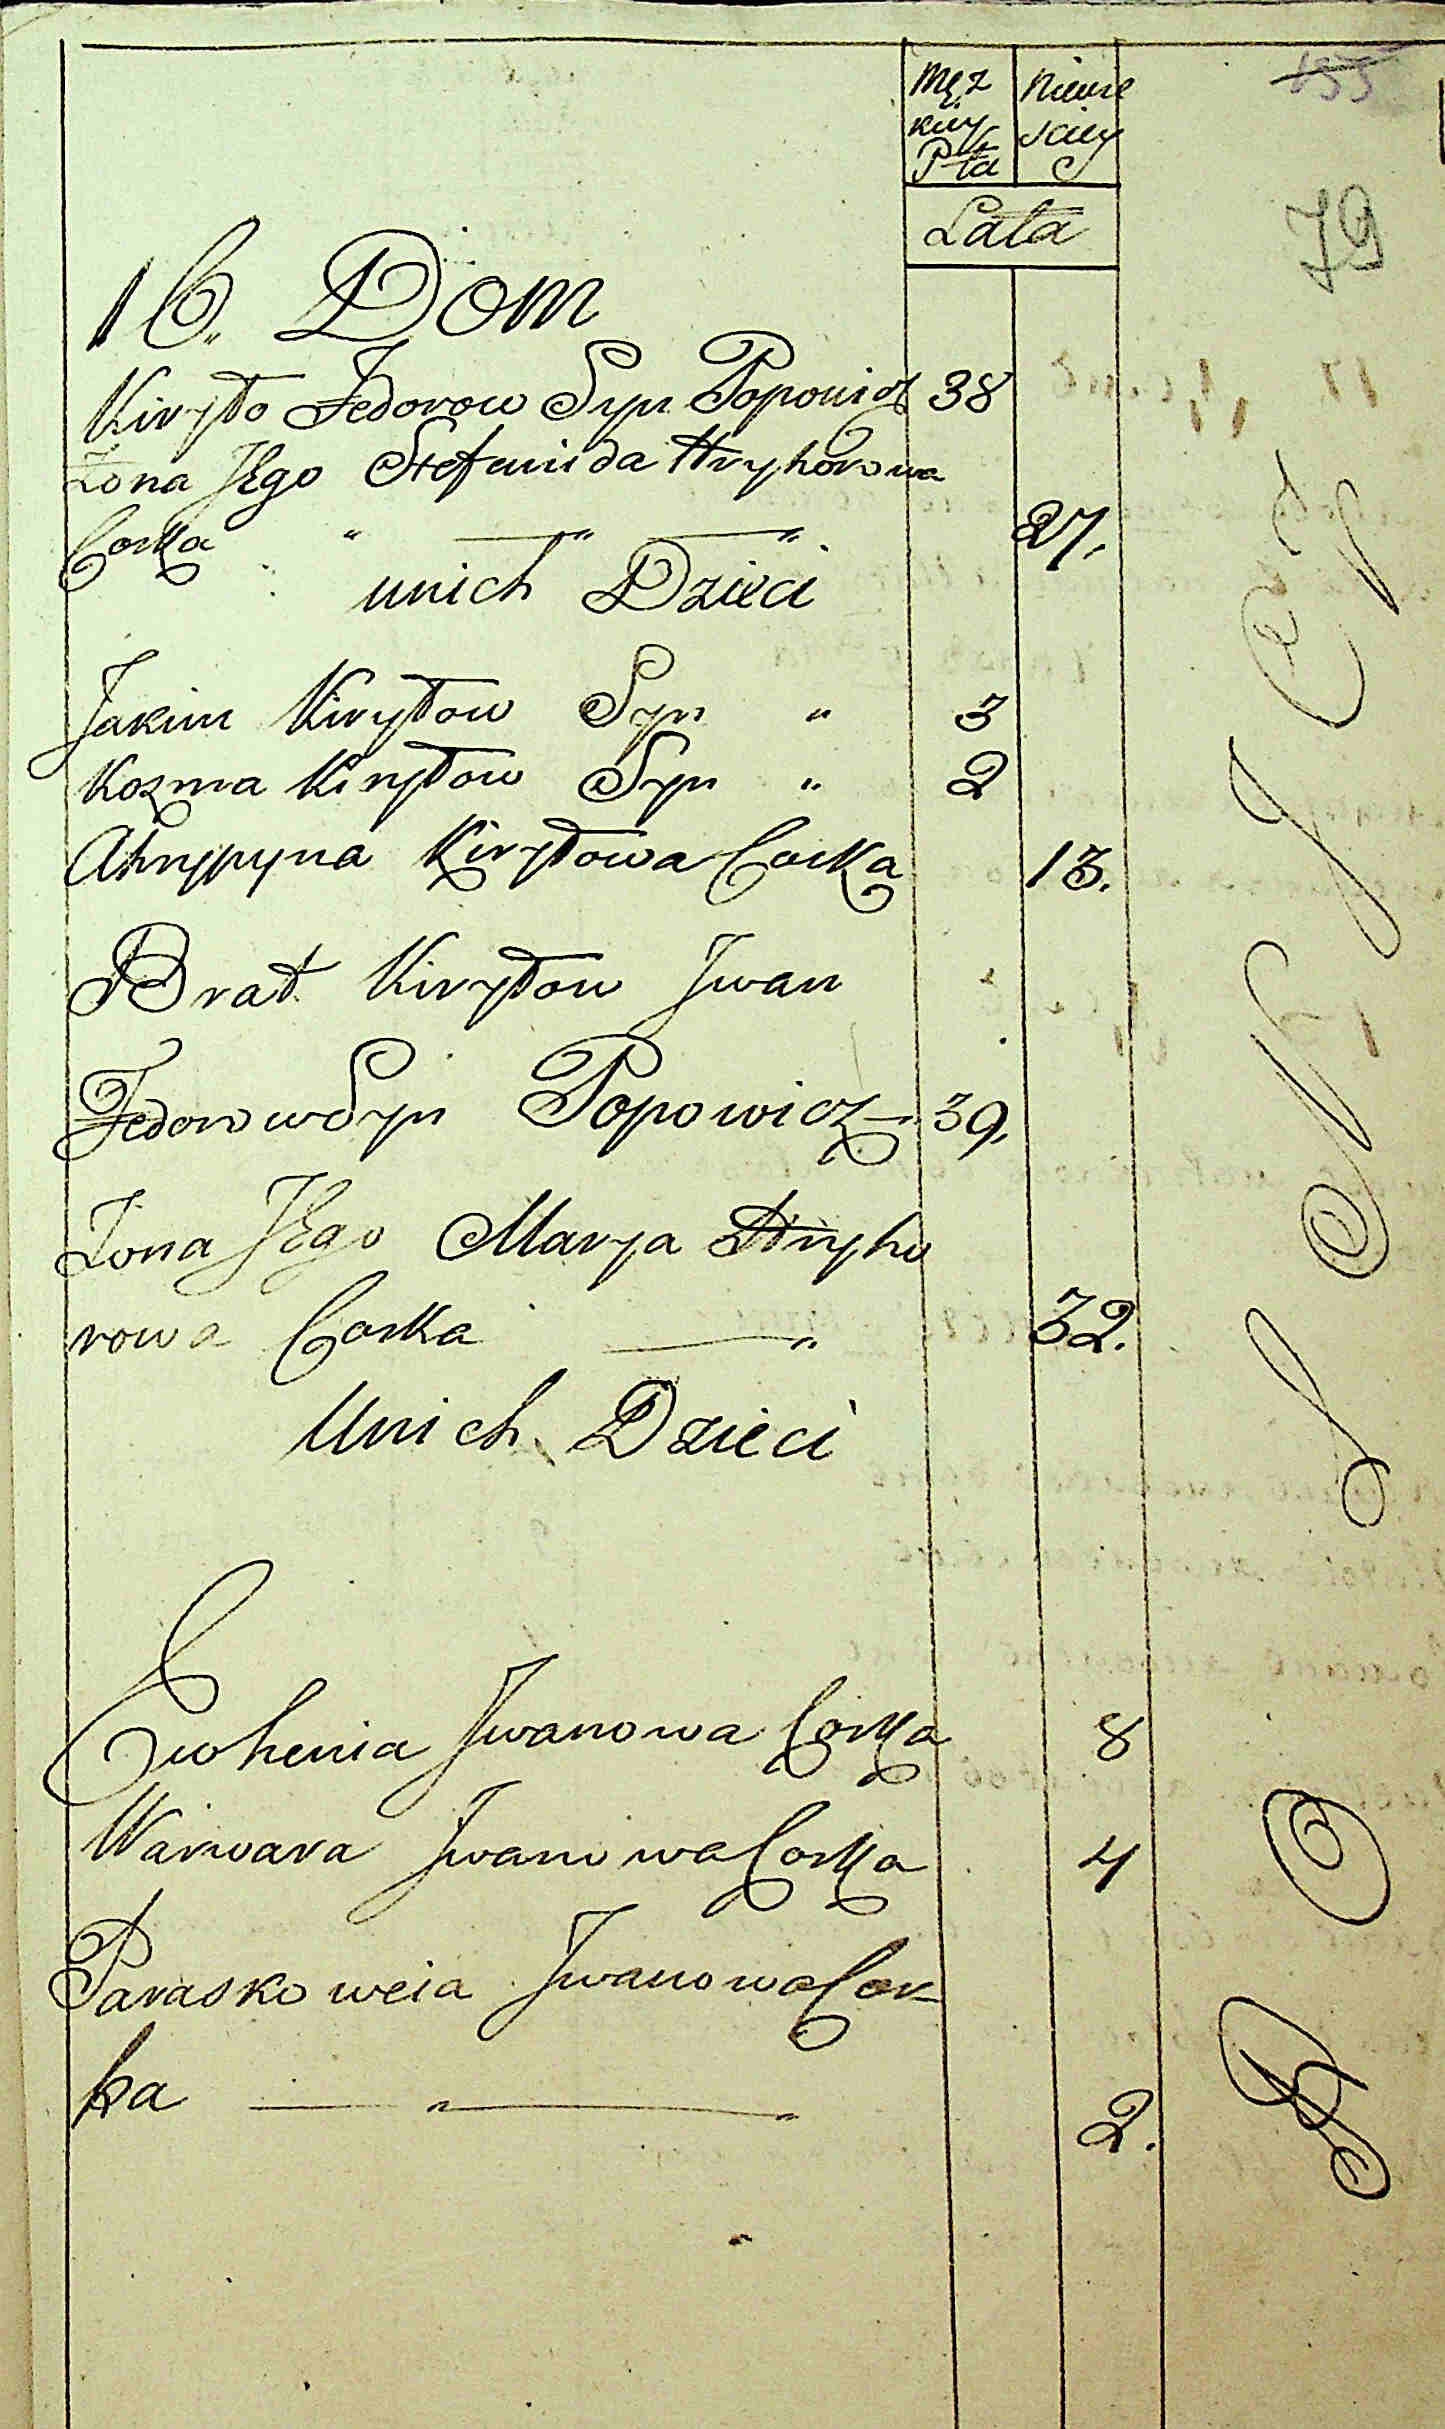 Męz Niewie
kiey sciey
Płci
Lata
155
79
16. Dom
Kiryło Fedorow Syn Popowicz 38
Zona JEgo Stefanida Hryhorowa
Corka " — " — " 27.
unich Dzieci
Jakim Kiryłow Syn " 3
Kozma Kiryłow Syn " 2
Ahrypyna Kiryłowa Corka 13.
Brat Kiryłow Jwan
Fedorow Syn Popowicz — 39.
Zona JEgo Marya Hryho
rowa Corka — " 32.
Unich Dzieci
Ewhenia Jwanowa Corka 8
Warwara Jwanowa Corka 4
Paraskoweia Jwanowa Cor-
ka — " — " 2.